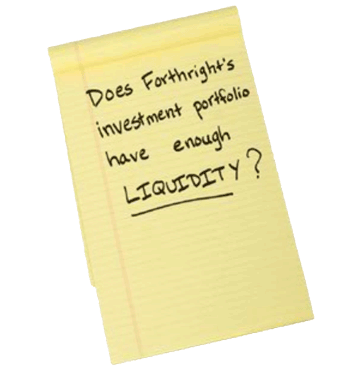 Does Forthright's
investment portfolio
have enough
LIQUIDITY?